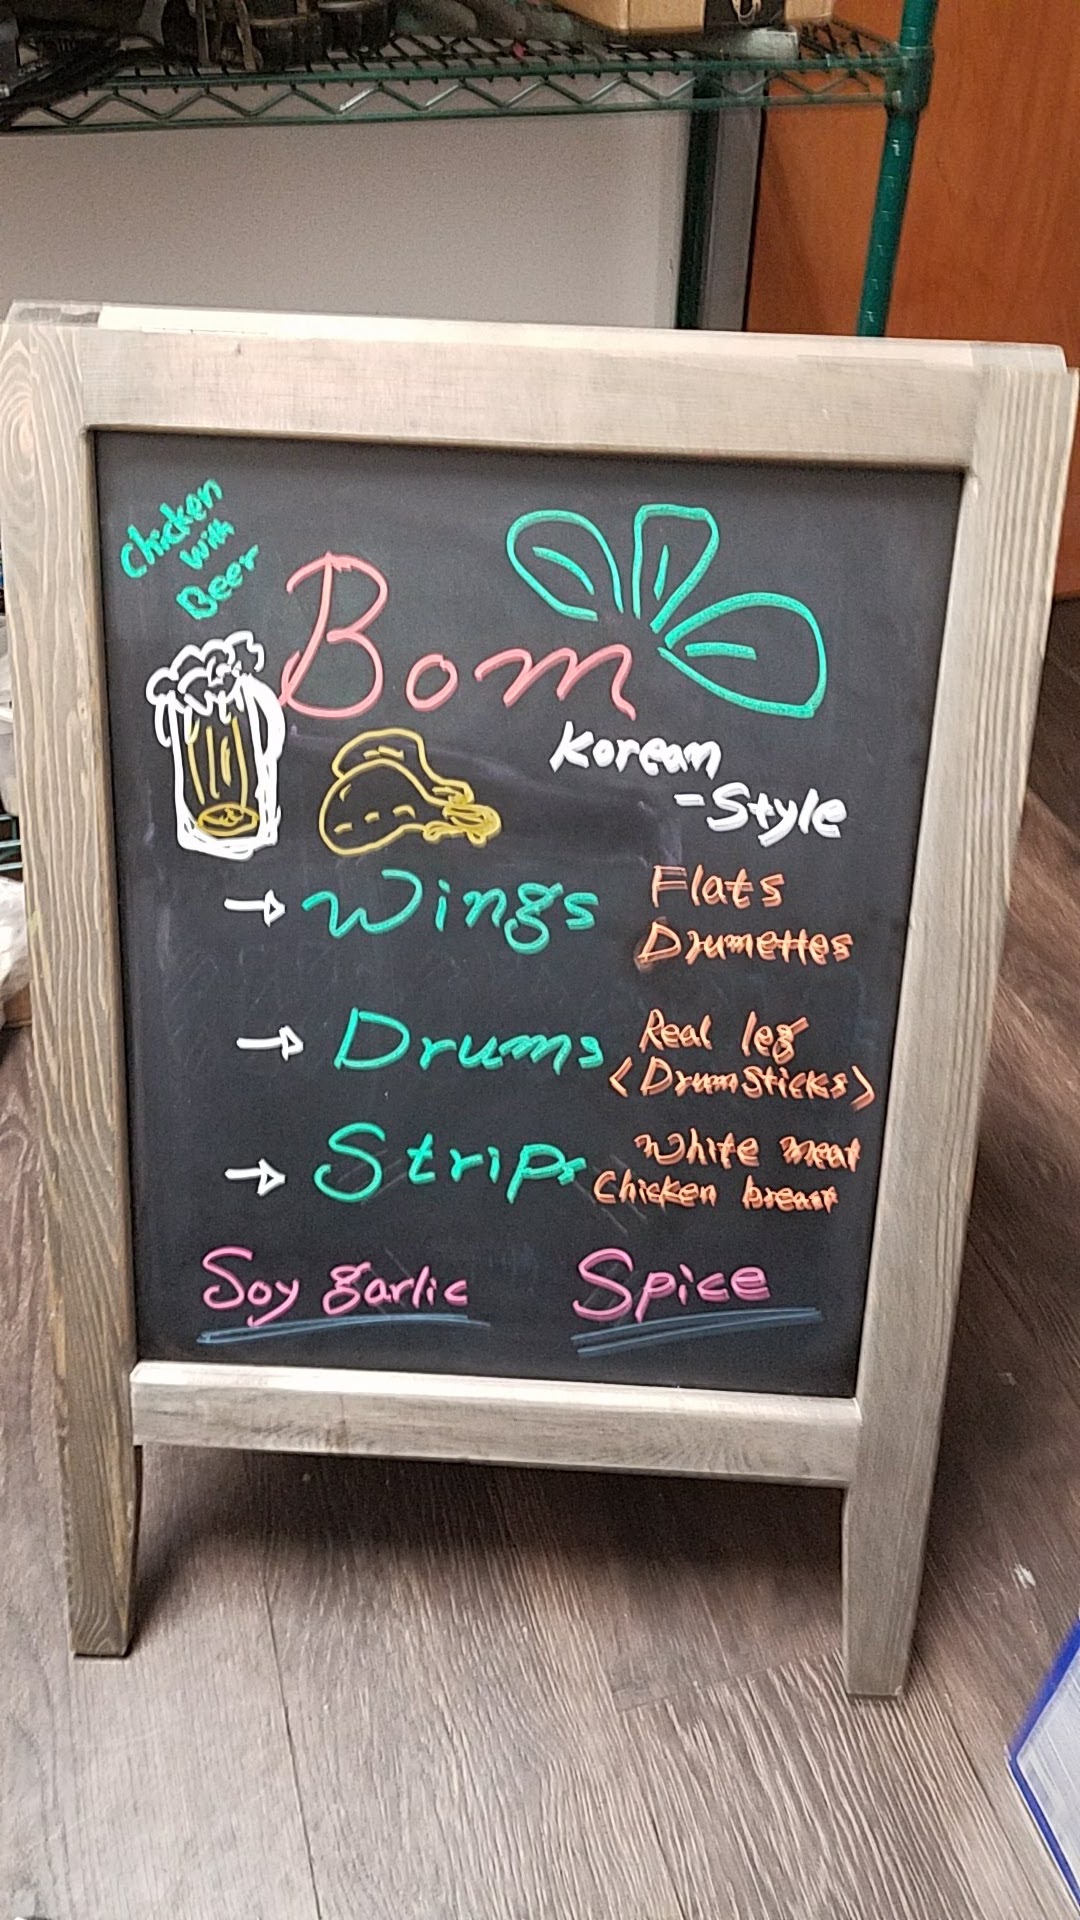 Chicken
with
Beer
Bom
Korean
-Style
→ Wings
Flats
Drumettes
→ Drums
Real leg
<Drumsticks>
→ Strips
White meat
Chicken breast
Soy garlic
Spice